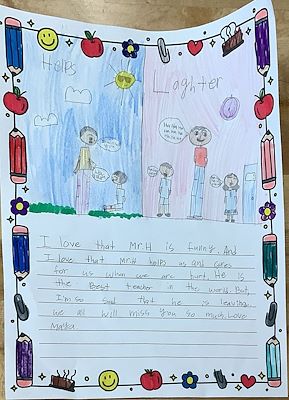 Helps
Laghter
I love that Mr.H is funny. And
I love that Mr.H helps us and cares
for us when we are hurt. He is
the Best teacher in the world. But,
I'm so sad that he is leaving.
we all will miss you so much. Love